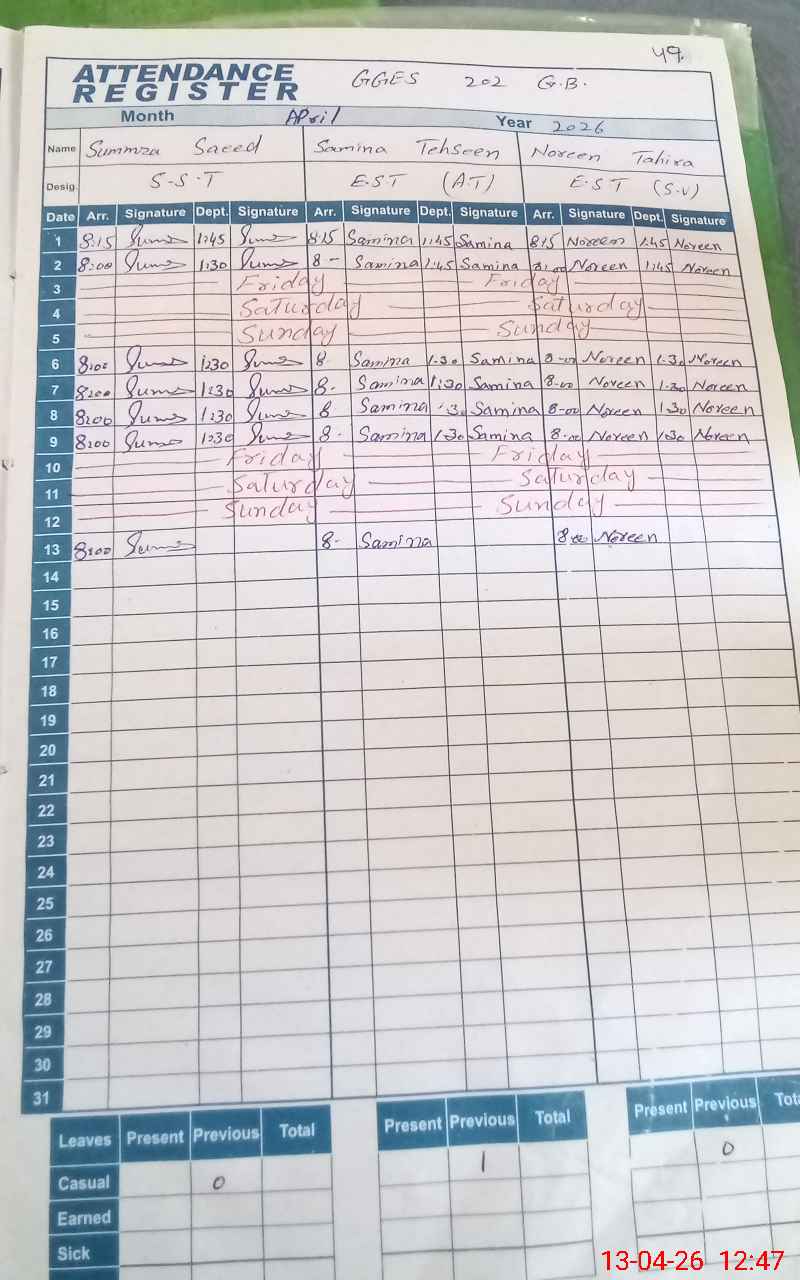 49.
ATTENDANCE REGISTER GGES 202 G.B.
Month April Year 2026
Name Summza Saeed Samina Tehseen Noreen Tahira
Desig. S-S-T E.S.T (A.T) E.S.T (S.V)
Date Arr. Signature Dept. Signature Arr. Signature Dept. Signature Arr. Signature Dept. Signature
1 8:15 1:45 8:15 Samina 1:45 Samina 8:15 Noreen 1:45 Noreen
2 8:00 1:30 8- Samina 1:45 Samina 8:00 Noreen 1:45 Noreen
3 Friday Friday
4 Saturday Saturday
5 Sunday Sunday
6 8:00 1:30 8- Samina 1-30 Samina 8-00 Noreen 1-30 Noreen
7 8:00 1:30 8- Samina 1:30 Samina 8-00 Noreen 1-30 Noreen
8 8:00 1:30 8 Samina Samina 8-00 Noreen 1:30 Noreen
9 8:00 1:30 8- Samina 1-30 Samina 8-00 Noreen 1:30 Noreen
10 Friday Friday
11 Saturday Saturday
12 Sunday Sunday
13 8:00 8- Samina 8-00 Noreen
14
15
16
17
18
19
20
21
22
23
24
25
26
27
28
29
30
31
Leaves Present Previous Total Present Previous Total Present Previous
Casual 0 1 0
Earned
Sick
13-04-26 12:47